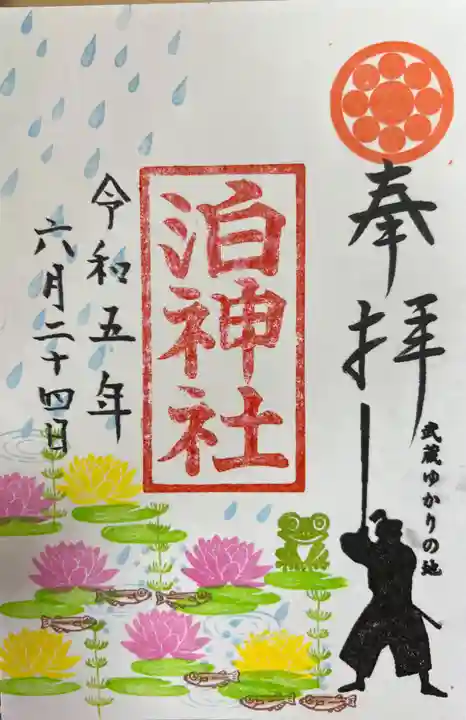 奉拝
武蔵ゆかりの地
泊神社
令和五年
六月二十四日